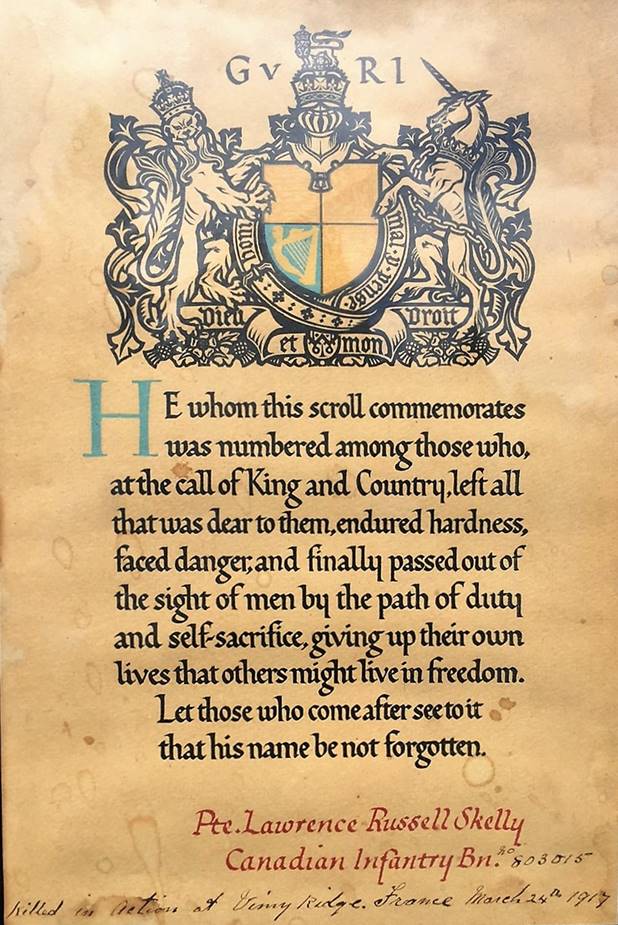 GV RI
Honi
mal·y·pense
Dieu
Droit
et mon
HE whom this scroll commemorates
was numbered among those who,
at the call of King and Country, left all
that was dear to them, endured hardness,
faced danger, and finally passed out of
the sight of men by the path of duty
and self-sacrifice, giving up their own
lives that others might live in freedom.
Let those who come after see to it
that his name be not forgotten.
Pte. Lawrence Russell Skelly
Canadian Infantry Bn. No 803015
Killed in Action at Vimy Ridge. France March 24th 1917